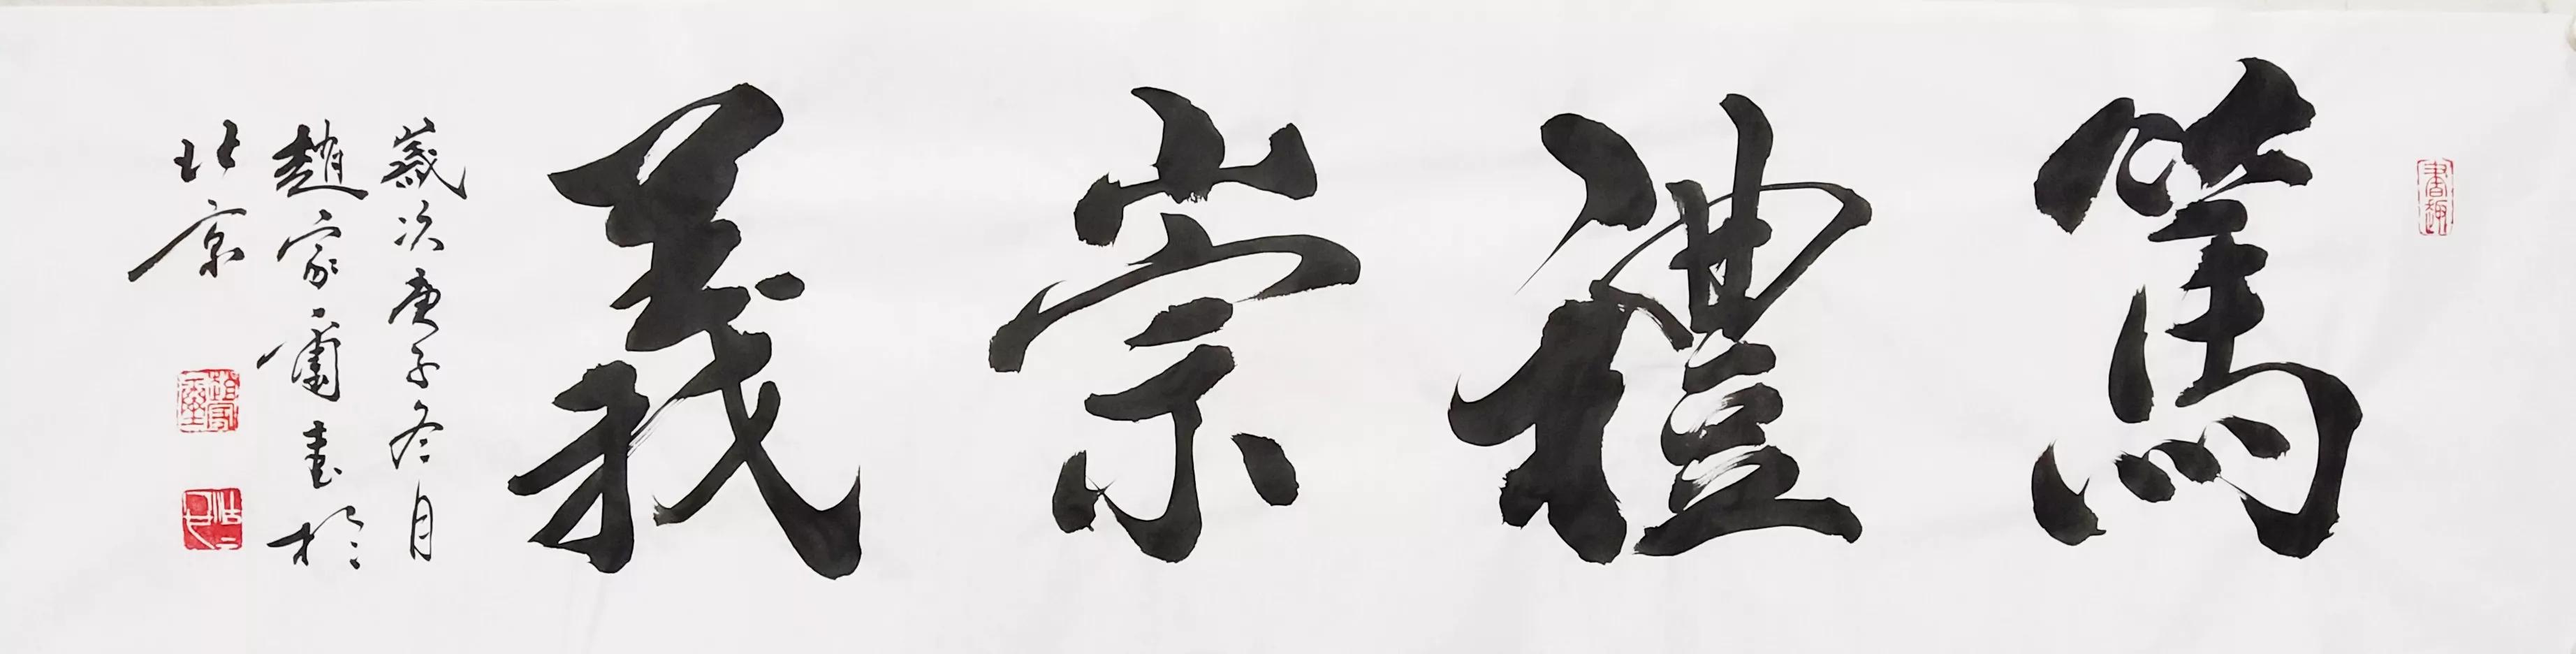 書趣
篤禮崇義
歲次庚子冬月
趙家書於
北京
趙家